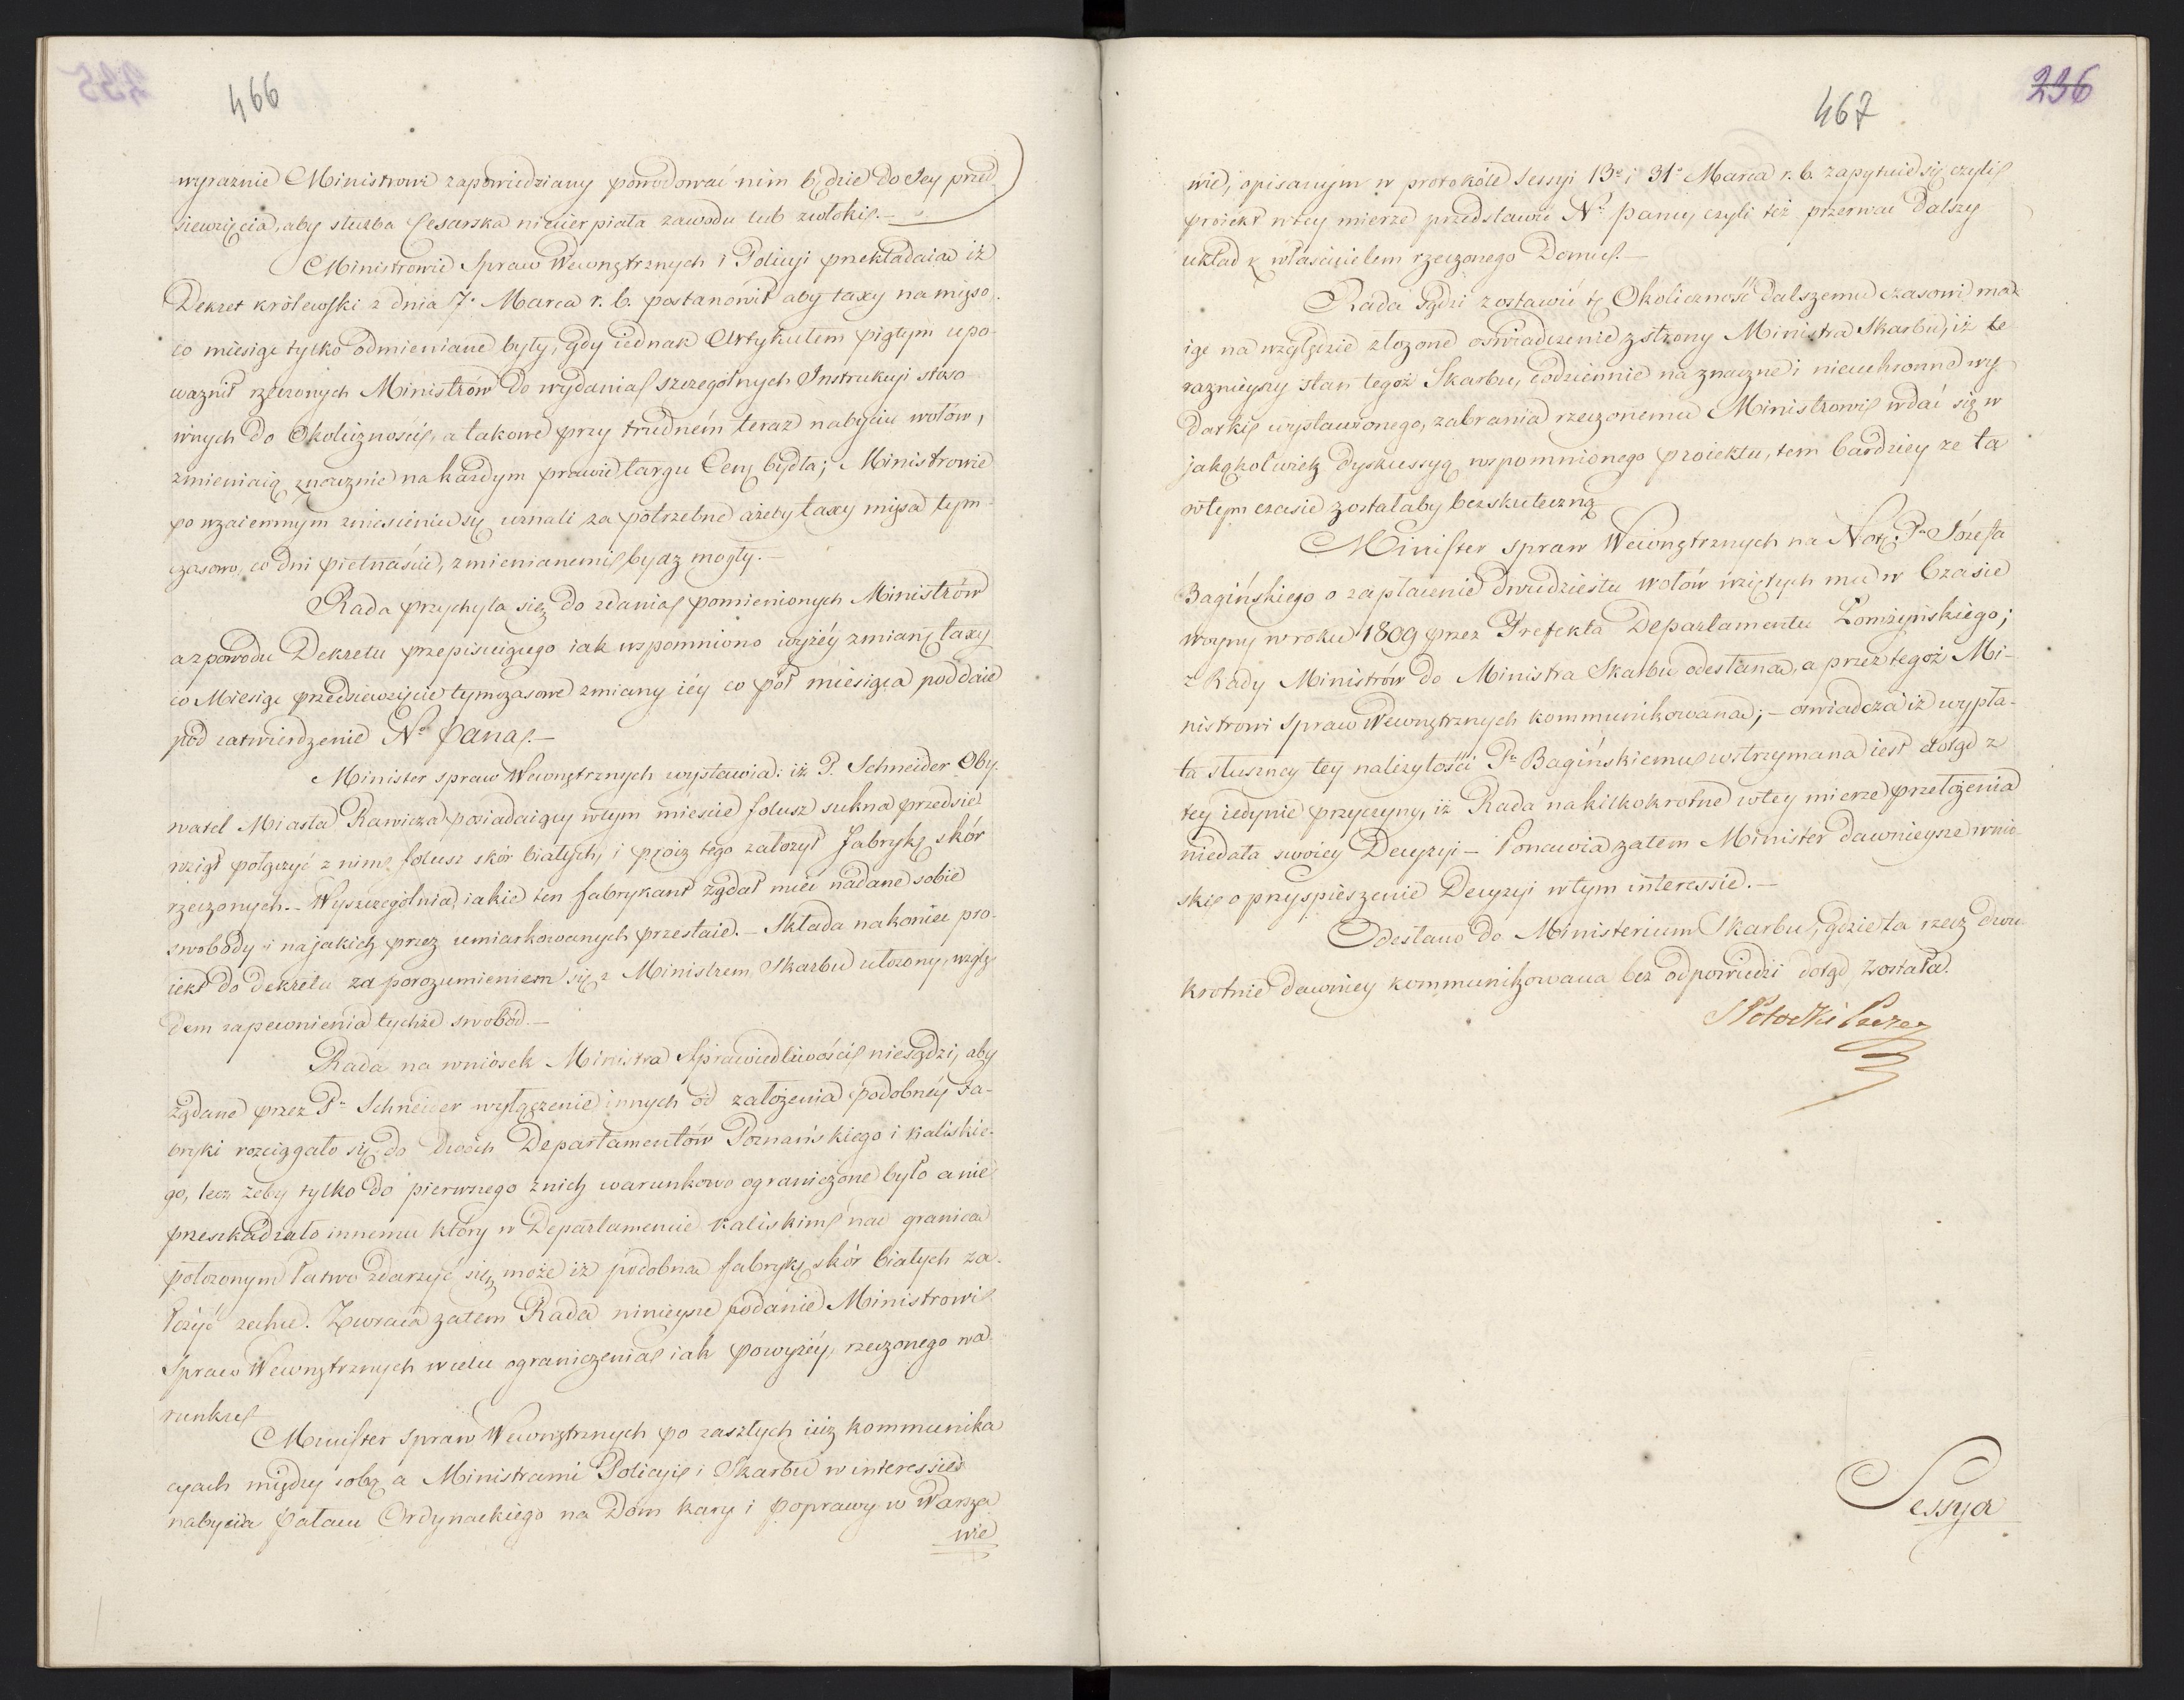 466
wyraznie Ministrowi zapowiedziany powodować nim będzie do Jey przed
siewzięcia, aby służba Cesarska niecierpiała zawodu lub zwłoki.—
Ministrowie Spraw Wewnętrznych i Policyi przekładaia iż
Dekret królewski z dnia 7. Marca r. b. postanowił aby taxy na mięso
co miesiąc tylko odmieniane były, gdy iednak Artykułem piątym upo-
ważnił rzeczonych Ministrów do wydania szczególnych Instrukcyi stoso-
wnych do Okoliczności, a takowe przy trudném teraz nabyciu wołów,
zmieniaią znacznie na każdym prawie targu Ceny bydła; Ministrowie
po wzaiemnym zniesieniu się uznali za potrzebne ażeby taxy mięsa tym-
czasowo, co dni piętnaście, zmienianemi bydź mogły.—
Rada przychyla się do zdania pomienionych Ministrów
a z powodu Dekretu przepisuiącego iak wspomniono wyżéy zmianę taxy
co Miesiąc przedsiewzięcie tymczasowe zmiany iéy co pół miesiąca poddaie
pod zatwierdzenie No Pana.—
Minister spraw Wewnętrznych wystawia: iż P. Schneider Oby-
watel Miasta Rawicza posiadaiący w tym mieście folusz sukna przedsie
wziął połączyć z nim folusz skór białych, i prócz tego założył fabrykę skór
rzeczonych.— Wyszczególnia iakie ten fabrykant żądał mieć nadane sobie
swobody i na jakich przez umiarkowanych przestaie.— Składa nakoniec pro-
iekt do dekretu za porozumieniem się z Ministrem Skarbu ułożony, wzglę-
dem zapewnienia tychże swobód.—
Rada na wniosek Ministra Sprawiedliwości niesądzi, aby
żądane przez Pa Schneider wyłączenie innych od założenia podobnéy fa-
bryki rozciągało się do dwóch Departamentów Poznańskiego i Kaliskie-
go, lecz żeby tylko do pierwszego z nich warunkowo ograniczone było a nie
przeszkadzało innemu który w Departamencie Kaliskim nad granica
położonym łatwo zdarzyć się może iż podobna fabrykę skór białych za-
łożyć zechce. Zwraca zatem Rada ninieysze podanie Ministrowi
Spraw Wewnętrznych w celu ograniczenia iak powyżéy, rzeczonego wa-
runku
Minister spraw Wewnętrznych po zaszłych iuż kommunika
cyach między sobą a Ministrami Policyi i Skarbu w interessie
nabycia Pałacu Ordynackiego na Dom kary i poprawy w Warsza
wie
236
467
wie, opisanym w protokóle Sessyi 13a i 31o Marca r. b. zapytuie się czyli
proiekt w tey mierze przedstawić No Panu, czyli też przerwać dalszy
układ z właścicielem rzeczonego Domu.—
Rada sądzi zostawić tę Okoliczność dalszemu czasowi ma-
iąc na względzie złożone oświadczenie z strony Ministra Skarbu, iż te
raznieyszy stan tegoż Skarbu, codziennie na znaczne i nieuchronne wy-
datki wystawionego, zabrania rzeczonemu Ministrowi wdać się w
jakąkolwiek dyskussyą wspomnionego proiektu, tem bardziey że ta
w tym czasie zostałaby bezskuteczną
Minister spraw Wewnętrznych na Notę Pa Józefa
Bagińskiego o zapłacenie dwudziestu wołów wziętych mu w Czasie
woyny w roku 1809 przez Prefekta Departamentu Łomżyńskiego;
z Rady Ministrów do Ministra Skarbu odesłana, a przez tegoż Mi-
nistrowi Spraw Wewnętrznych kommunikowana;— oświadcza iż wypła-
ta słuszney tey należytości Pu Bagińskiemu wstrzymana iest dotąd z
tey iedynie przyczyny, iż Rada na kilkokrotne w tey mierze przełożenia
niedała swoiey Decyzyi— Ponawia zatem Minister dawnieysze wnio-
ski o przyspieszenie Decyzyi w tym interessie.—
Odesłano do Ministerium Skarbu, gdzie ta rzecz dwu-
krotnie dawniey kommunikowana bez odpowiedzi dotąd została.
S Potocki Prezes
Sessya